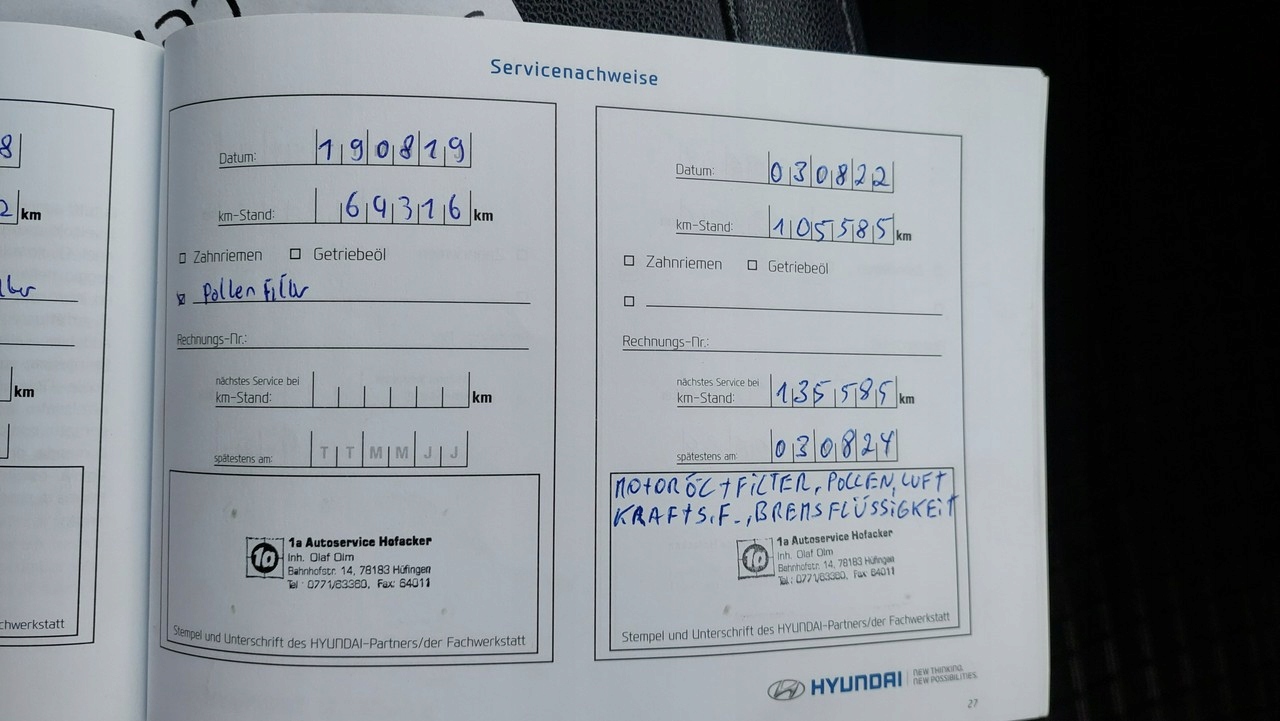 Servicenachweise
8
2 km
km
chwerkstatt
Datum: 190819
km-Stand: 64316 km
Zahnriemen Getriebeöl
Pollen Filter
Rechnungs-Nr.:
nächstes Service bei
km-Stand: km
spätestens am: T T M M J J
1a 1a Autoservice Hofacker
Inh. Olaf Olm
Bahnhofstr. 14, 78183 Hüfingen
Tel.: 0771/63360, Fax: 64011
Stempel und Unterschrift des HYUNDAI-Partners/der Fachwerkstatt
Datum: 030822
km-Stand: 105585 km
Zahnriemen Getriebeöl
Rechnungs-Nr.:
nächstes Service bei
km-Stand: 135585 km
spätestens am: 030824
MOTORÖL+FILTER, POLLEN, LUFT
KRAFTS.F., BREMSFLÜSSIGKEIT
1a 1a Autoservice Hofacker
Inh. Olaf Olm
Bahnhofstr. 14, 78183 Hüfingen
Tel.: 0771/63360, Fax: 64011
Stempel und Unterschrift des HYUNDAI-Partners/der Fachwerkstatt
HYUNDAI NEW THINKING.
NEW POSSIBILITIES.
27